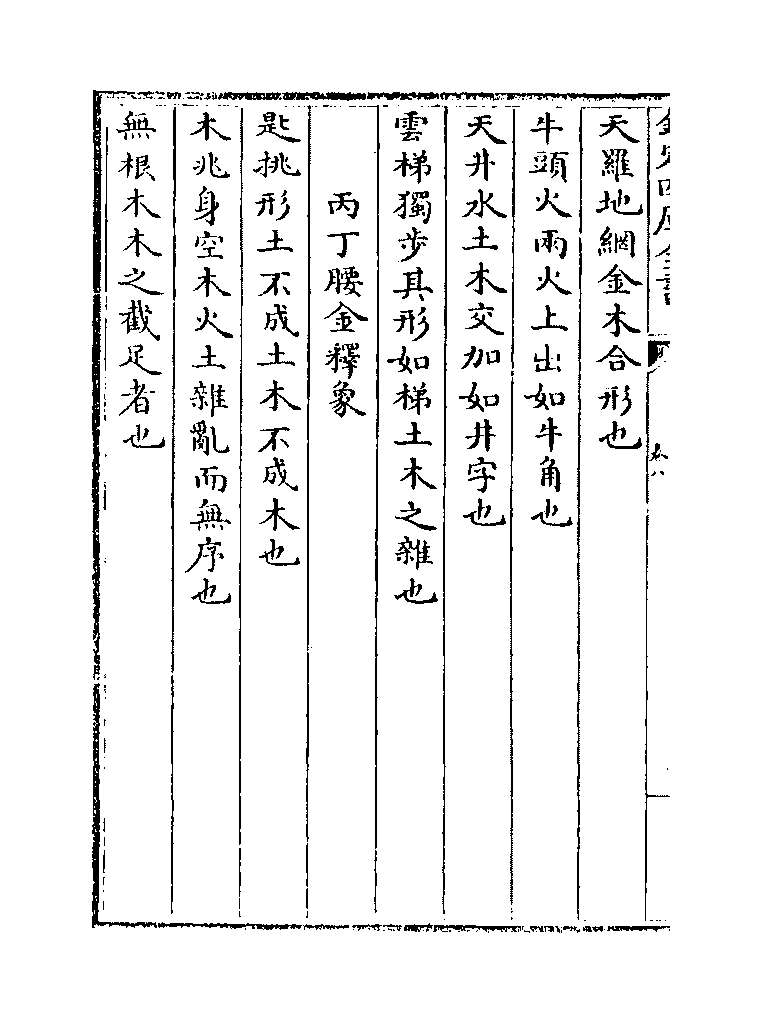 欽定四庫全書
卷八
天羅地網金木合形也
牛頭火兩火上出如牛角也
天井水土木交加如井字也
雲梯獨步其形如梯土木之雜也
丙丁腰金釋象
匙挑形土不成土木不成木也
木兆身空木火土雜亂而無序也
無根木木之截足者也